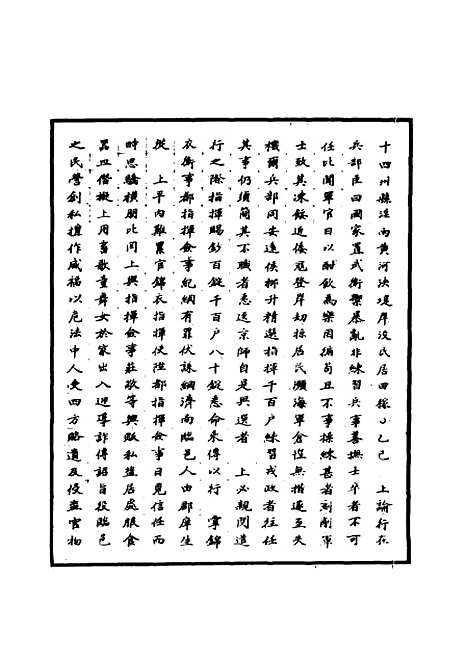 十四州縣淫雨黄河决堤岸没民居田稼○乙巳　上諭行在
兵部臣曰國家置武衛禦暴亂非練習兵事善撫士卒者不可
任比聞軍官日以酣飲為樂因循苟且不事操練甚者剥削軍
士致其凍餒近倭冦登岸刼掠居民瀕海軍倉惶無措遂至失
機爾兵部同安遠侯栁升精選指揮千百户練習戎政者往任
其事仍須簡其不職者悉送京師自是與選者　上必親閱遣
行之除指揮賜鈔百錠千百户八十錠悉命乗傳以行　掌錦
衣衛事都指揮僉事紀綱有罪伏誅綱濟南臨邑人由郡庠生
從　上平内難累官錦衣指揮使陞都指揮僉事日見信任而
時思驕横朋比同上與指揮僉事莊敬等興販私鹽居處服食
器皿僭擬上用畜歌童舞女於家出入迎導詐傳詔旨役臨邑
之民營創私擅作威福以危法中人受四方賂遺及侵盗官物